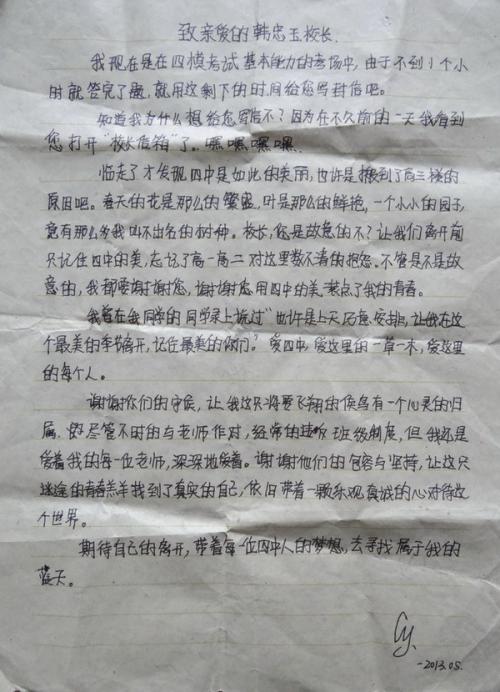 致亲爱的韩忠玉校长.
我现在是在四模考试基本能力的考场中,由于不到1个小
时就答完了题,就用这剩下的时间给您写封信吧。
知道我为什么想给您写信不?因为在不久前的一天我看到
您打开“校长信箱”了。嘿,嘿嘿,嘿.
临走了才发现四中是如此的美丽,也许是搬到了高三楼的
原因吧。春天的花是那么的繁盛,叶是那么的鲜艳,一个小小的园子,
竟有那么多我叫不出名的树种。校长,您是故意的不?让我们离开前
只记住四中的美,忘记了高一高二对这里数不清的抱怨。不管是不是故
意的,我都要谢谢您,谢谢您用四中的美点了我的青春。
我曾在我同学的同学录上说过“也许是上天巧意安排,让我在这
个最美的季节离开,记住最美的你们?爱四中,爱这里的一草一木,爱这里
的每个人。
谢谢你们的守候,让我这只将要飞翔的候鸟有一个心灵的归
属.尽管不时的与老师作对,经常的班级制度,但我还是
爱着我的每一位老师,深深地爱着。谢谢他们的包容与坚持,让这只
迷途的青春羔羊找到了真实的自己,依旧带着一颗乐观真诚的心对待这
个世界。
期待自己的离开,带着每一位四中人的梦想,去寻找属于我的
蓝天。
Cy.
-2013.05.